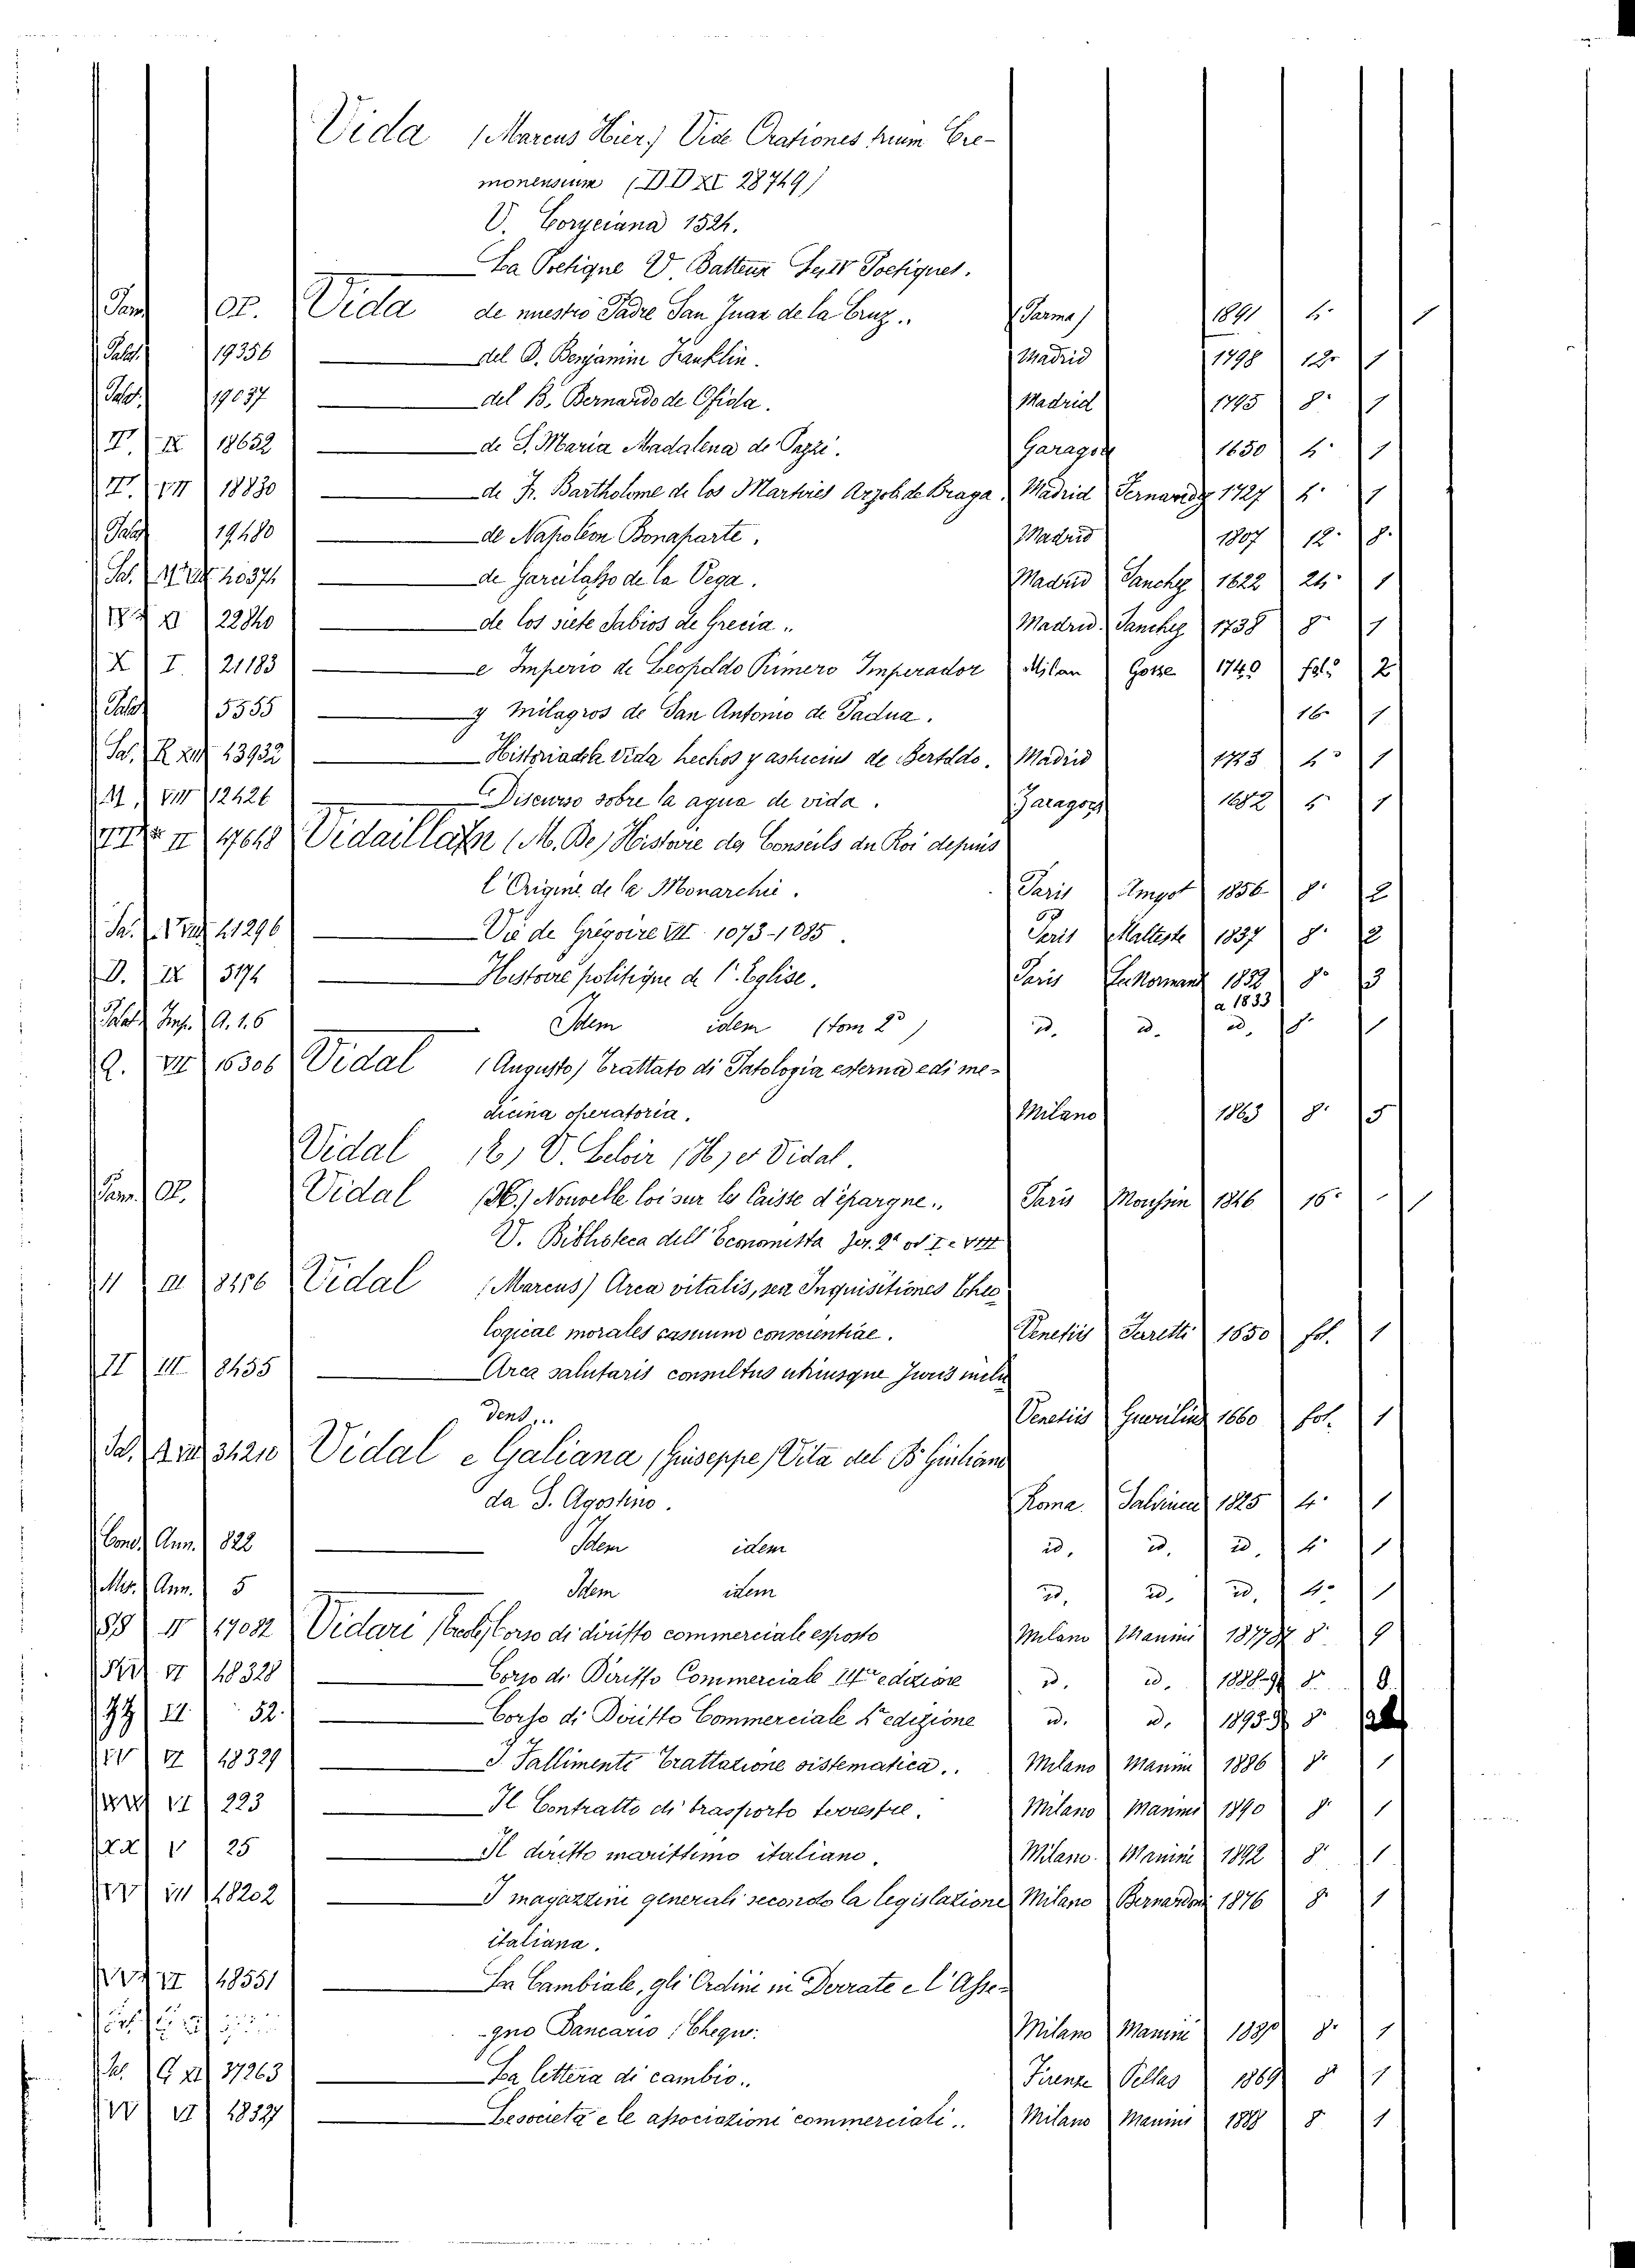 Vida (Marcus Hier.) Vide Orationes trium Cre-
monensium (DD XI 28749)
V. Coryciana 1524.
La Poetique V. Batteux Poetiques.
Parm OP. Vida de nuestro Padre San Juan de la Cruz.. (Parma) 1891 4° 1
Palat. 19356 del D. Benjamin Franklin. Madrid 1798 12° 1
Palat. 19037 del B. Bernardo de Ofida. Madrid 1795 8° 1
18652 de S. Maria Madalena de Pazzi. 1650 4° 1
VII 18830 de Fr. Bartholome de los Martires Arzob. de Braga. Madrid Fernandez 1727 4° 1
Palat 19480 de Napoleon Bonaparte. Madrid 1807 12° 8.
Sal. 40374 de Garcilasso de la Vega. Madrid Sanchez 1622 24° 1
22840 de los siete Sabios de Grecia.. Madrid. Sanchez 1738 8° 1
X I 21183 e Imperio de Leopoldo Primero Imperador Milan 1740 fol° 2
Palat 5555 y Milagros de San Antonio de Padua. 16° 1
Sal. R 43932 Historia de la vida hechos y astucias de Bertoldo. Madrid 4° 1
VIII 12426 Discurso sobre la agua de vida. Zaragoza 1682 1
II 47648 Vidaillan (M. De) Histoire des Conseils du Roi depuis
l'Origine de la Monarchie. Paris Amyot 1856 8° 2
Sa. 41296 Vie de Grégoire VII 1073-1085. Paris Malteste 1837 8° 2
D. IX 5174 Histoire politique de l'Eglise. Paris Le Normant 1832 8° 3
a 1833
Palat. Imp. A. 1. 6 Idem idem (tom 2°) id. id. id. 8° 1
Q. VII 16306 Vidal (Augusto) Trattato di Patologia esterna e di me-
dicina operatoria. Milano 1863 8° 5
Vidal V. Leloir (H) et Vidal.
Parm. OP. Vidal Nouvelle loi sur les Caisse d'épargne.. Paris 1846 16° 1
V. Biblioteca dell'Economista Ser. 2a
III 8456 Vidal (Marcus) Arca vitalis, seu Inquisitiones Theo
logical morales casuum conscientiae. Venetiis 1650 fol. 1
II III 8455 Arca salutaris consultus utriusque Juris
dens... Venetiis 1660 fol. 1
Sal. 34210 Vidal e Galiana (Giuseppe) Vita del B. Giuliano
da S. Agostino. Roma Salviucci 1825 4° 1
Cond. Ann. 822 Idem idem id. id. id. 4° 1
Ann. 5 Idem idem id. id. id. 4° 1
II 47082 Vidari (Ercole) Corso di diritto commerciale esposto Milano Manini 1877-87 8° 9
48328 Corso di Diritto Commerciale edizione id. id. 8° 9.
52. Corso di Diritto Commerciale 4a edizione id. id. 8°
VI 48329 I Fallimenti Trattazione sistematica.. Milano Manini 1886 8° 1
VI 223 Il Contratto di trasporto terrestre. Milano Manini 1890 8° 1
V 25 Il diritto marittimo italiano. Milano. Manini 1892 8° 1
III 48202 I magazzini generali secondo la legislazione Milano Bernardoni 1876 8° 1
italiana.
II 48551 La Cambiale, gli Ordini in Derrate e l'Asse-
-gno Bancario (Cheque. Milano Manini 8° 1
37263 La lettera di cambio.. Firenze Pellas 1869 8° 1
VI 48327 Le società e le associazioni commerciali.. Milano Manini 1888 8° 1